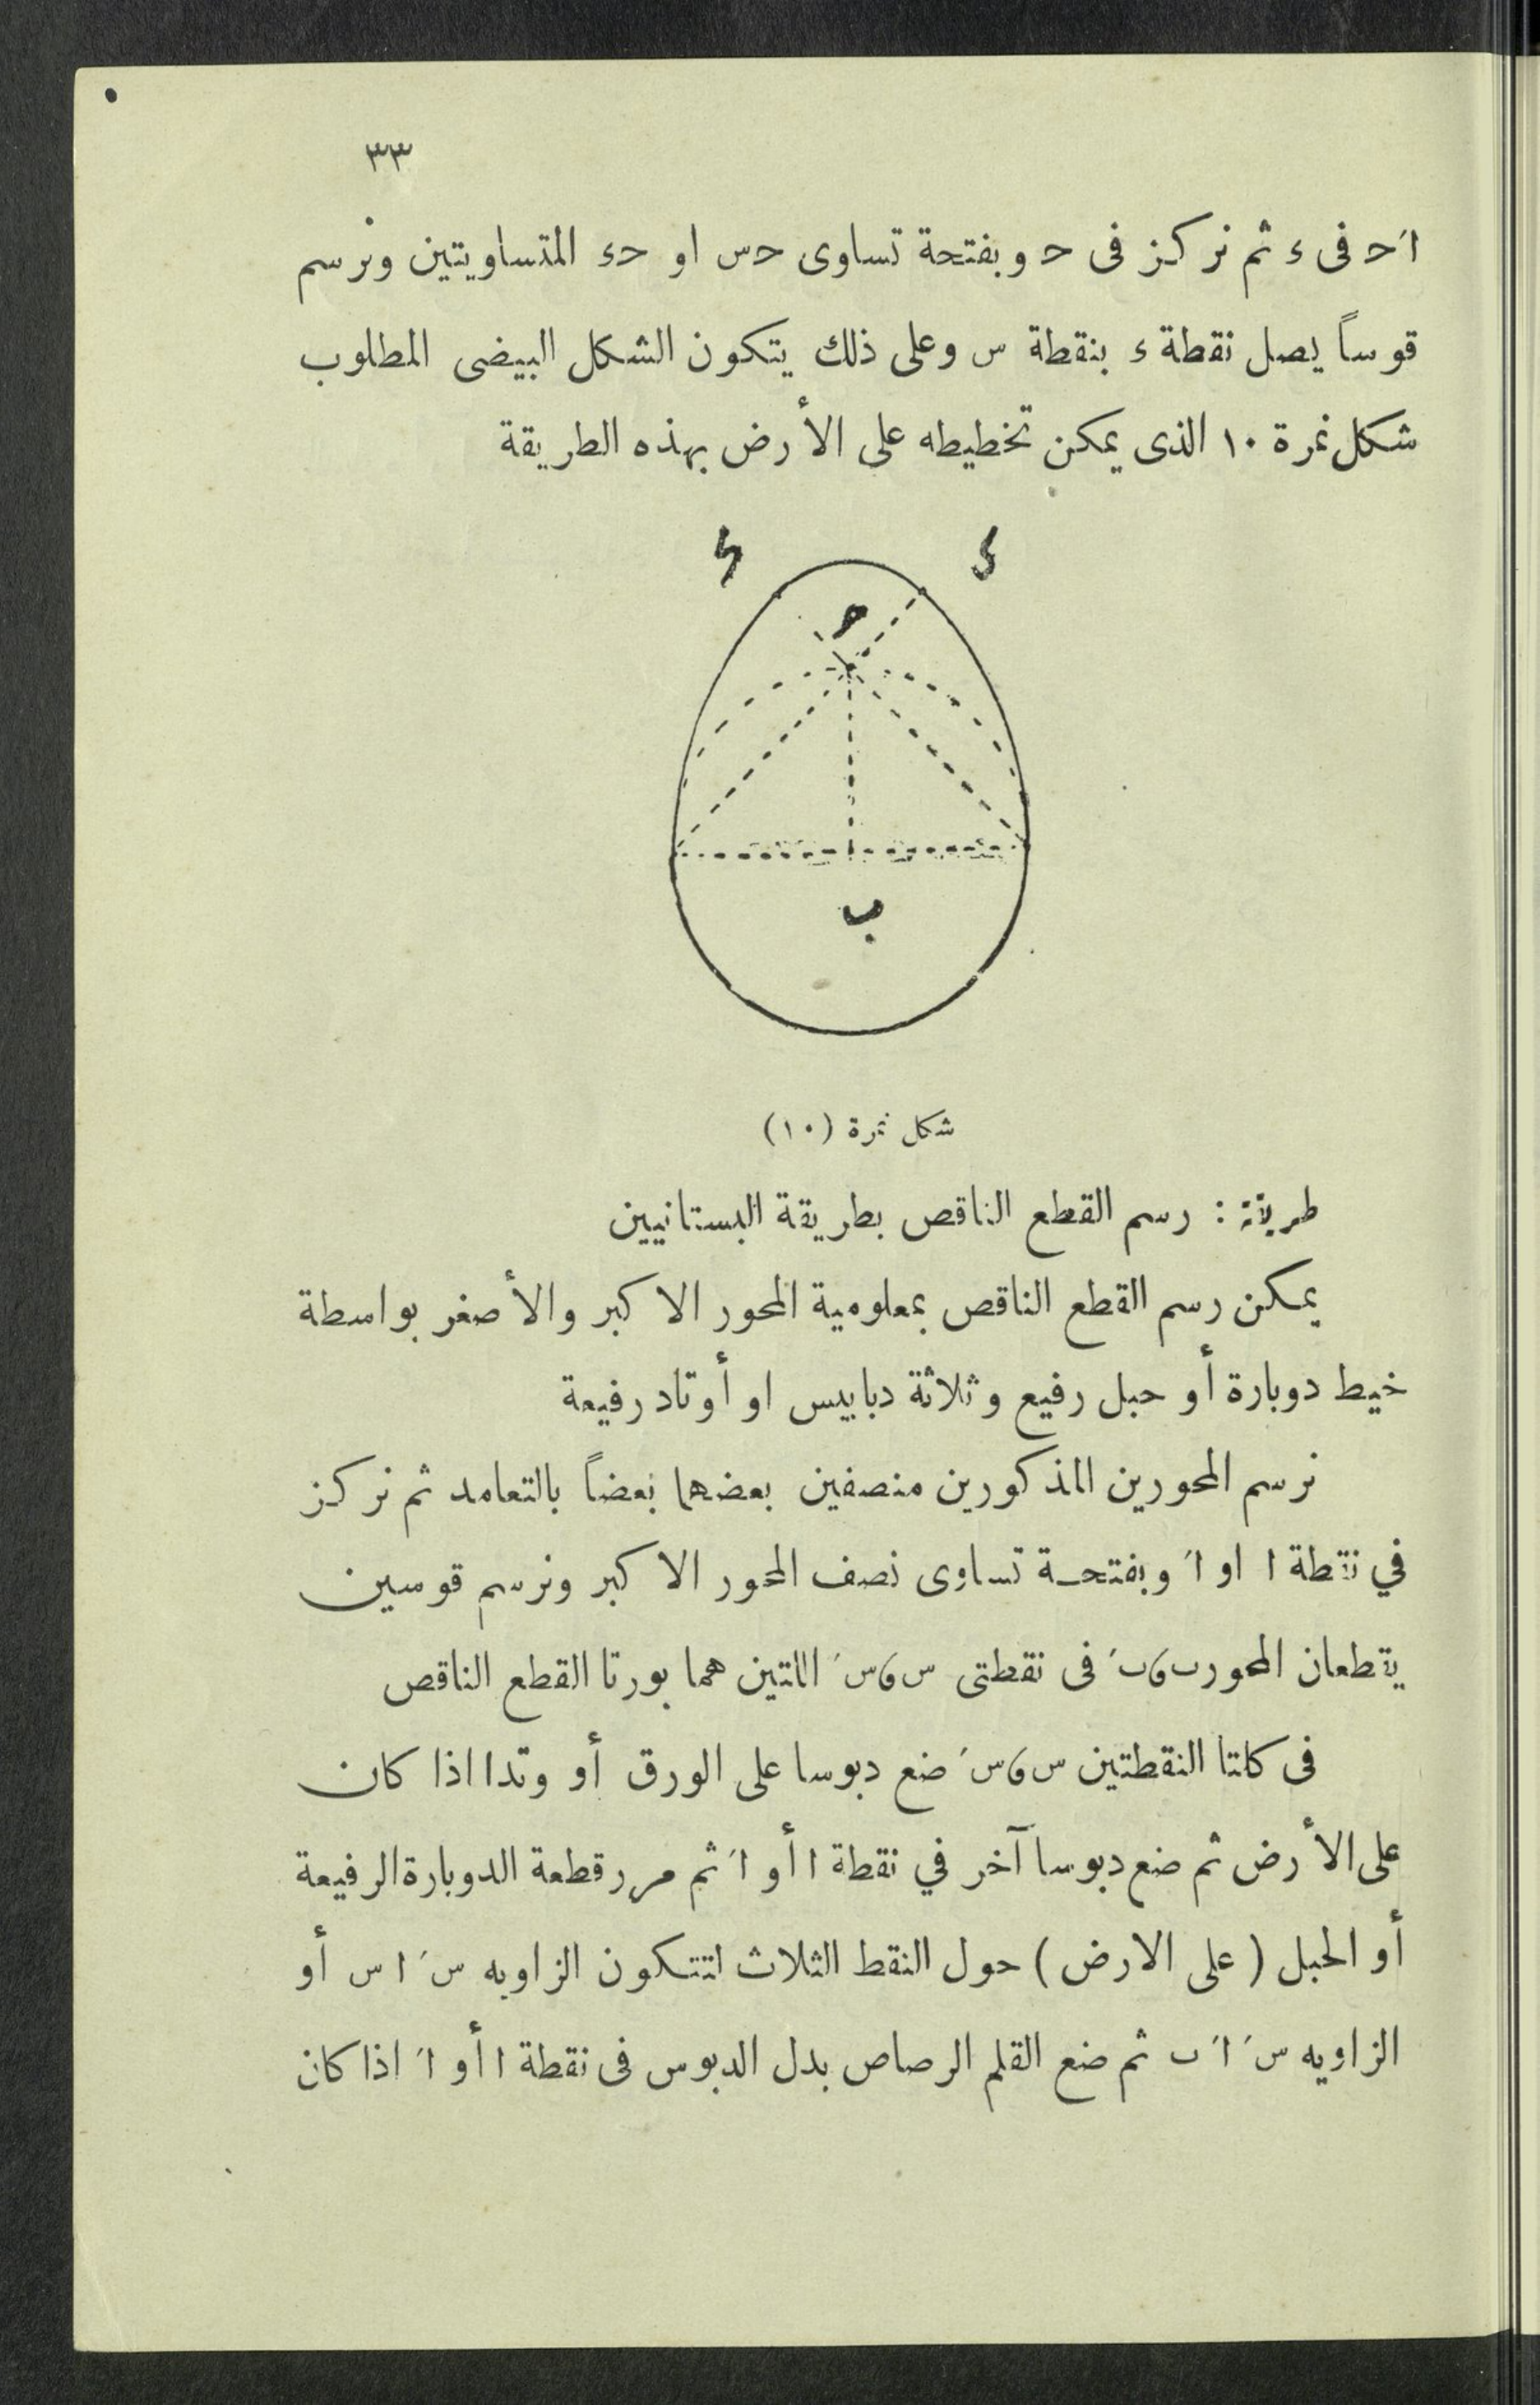 ٣٣
اَحـ فى ء ثم نركز فى حـ وبفتحة تساوى حـس او حـء المتساويتين ونرسم
قوساً يصل نقطة ء بنقطة س وعلى ذلك يتكون الشكل البيضى المطلوب
شكل نمرة ١٠ الذى يمكن تخطيطه على الأرض بهذه الطريقة
ب
شكل نمرة (١٠)
طريقة : رسم القطع الناقص بطريقة البستانيين
يمكن رسم القطع الناقص بمعلومية المحور الاكبر والأصغر بواسطة
خيط دوبارة أو حبل رفيع وثلاثة دبابيس او أوتاد رفيعة
نرسم المحورين المذكورين منصفين بعضهما بعضاً بالتعامد ثم نركز
في نقطة ا او اَ وبفتحـة تساوى نصف المحور الاكبر ونرسم قوسين
يقطعان المحور ٮ و ٮَ فى نقطتى س و سَ اللتين هما بورتا القطع الناقص
فى كلتا النقطتين س و سَ ضع دبوسا على الورق أو وتدا اذا كان
على الأرض ثم ضع دبوسا آخر في نقطة ا أو اَ ثم مرر قطعة الدوبارة الرفيعة
أو الحبل ( على الارض ) حول النقط الثلاث لتتكون الزاويه سَ ا س أو
الزاويه سَ اَ ٮ ثم ضع القلم الرصاص بدل الدبوس فى نقطة ا أو اَ اذا كان